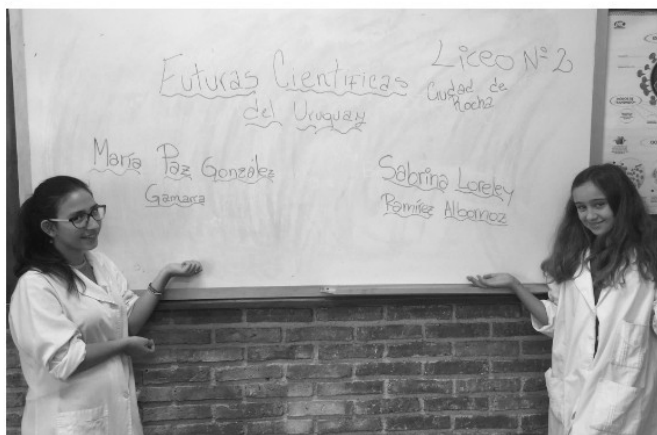 Futuras Científicas
del Uruguay
Liceo Nº 2
Ciudad de
Rocha
María Paz González
Gamarra
Sabrina Loreley
Ramírez Albornoz